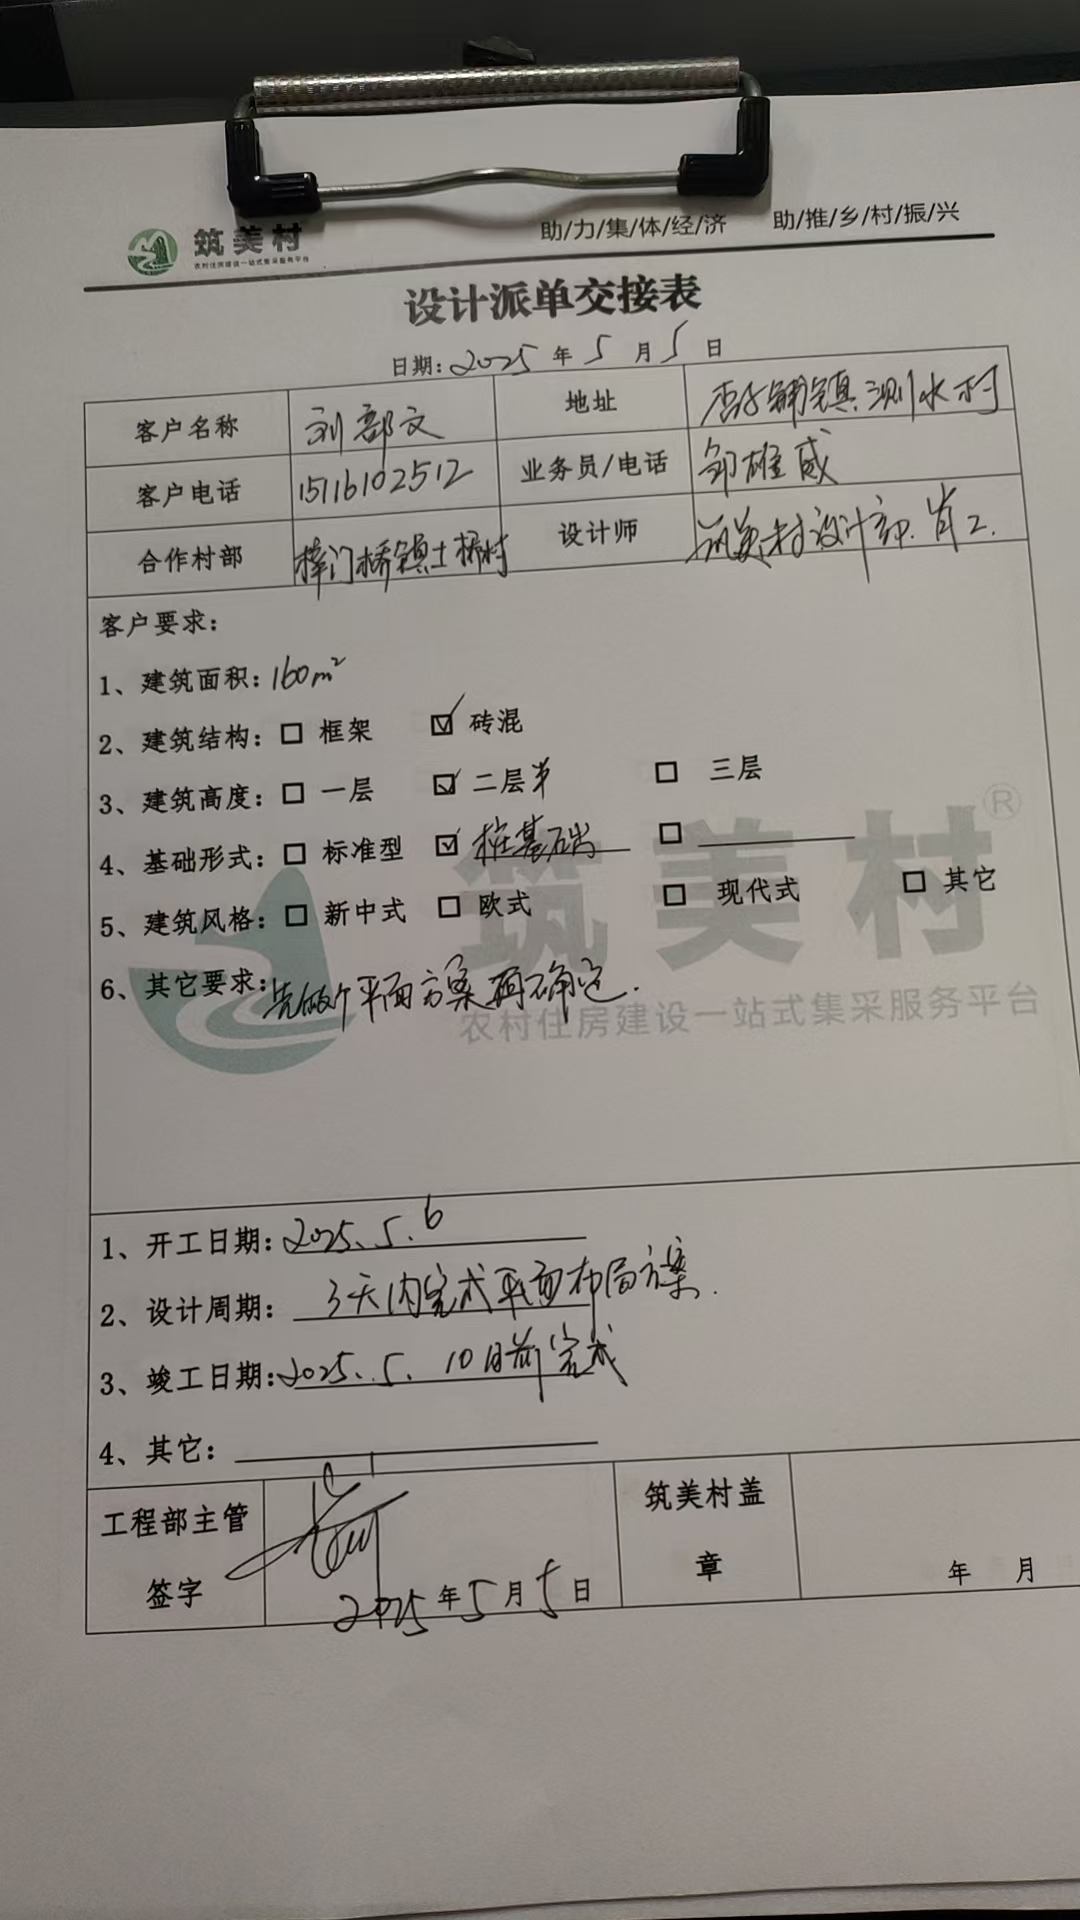 筑美村
农村住房建设一站式集采服务平台
助/力/集/体/经/济 助/推/乡/村/振/兴
设计派单交接表
日期: 2025 年 5 月 5 日
客户名称 刘部文 地址 杏子铺镇测水村
客户电话 15116102512 业务员/电话 邹雄威
合作村部 梓门桥镇土桥村 设计师 筑美村设计部 肖工.
客户要求:
1、建筑面积: 160m²
2、建筑结构: □ 框架 ☑ 砖混
3、建筑高度: □ 一层 ☑ 二层半 □ 三层
4、基础形式: □ 标准型 ☑ 桩基础 □
5、建筑风格: □ 新中式 □ 欧式 □ 现代式 □ 其它
6、其它要求: 先做个平面方案再确定.
筑美村®
农村住房建设一站式集采服务平台
1、开工日期: 2025.5.6
2、设计周期: 3天内完成平面布局方案.
3、竣工日期: 2025.5.10日前完成
4、其它:
工程部主管
签字
2025年5月5日
筑美村盖
章
年 月